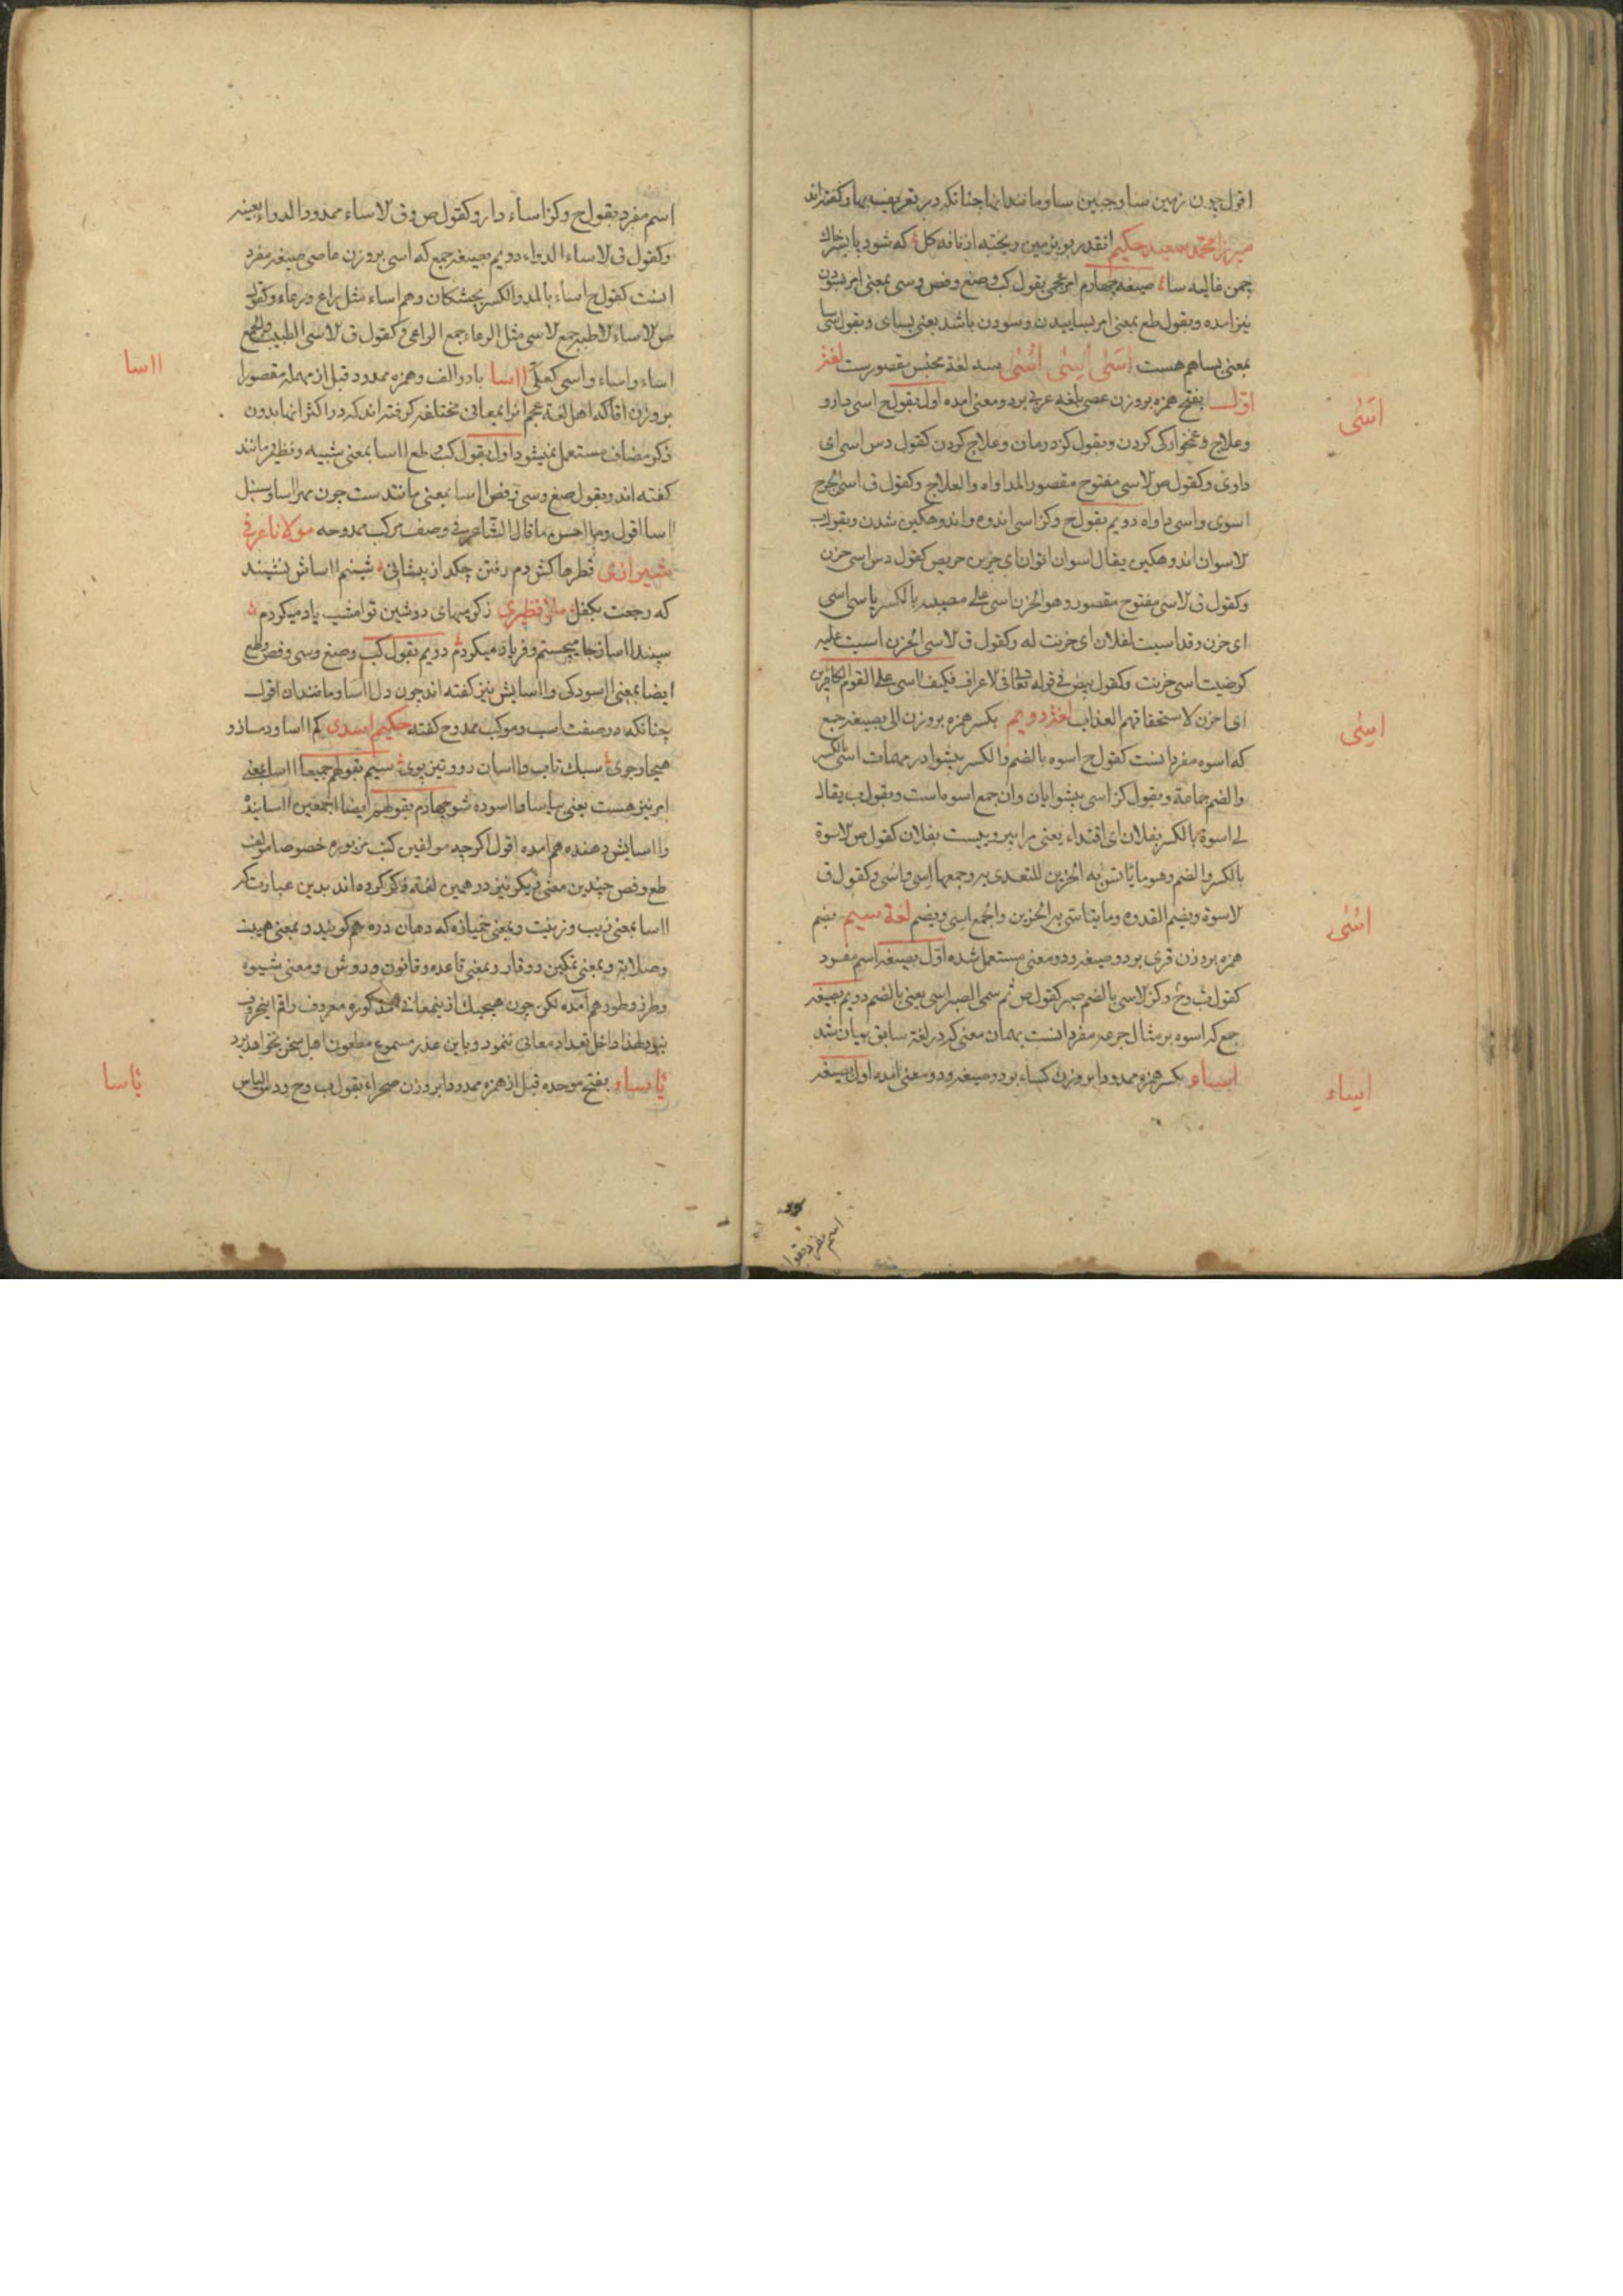 اقول چون زمین سا و جبین سا و مانند اینها چنانکه در تعریف بهار گفته‌اند
میرزا محمد سعید حکیم انقدر بو بزمین ریخته از نافه کل که شود باد بر خاک
چمن غالیه سا صیغه چهارم امر عجمی بقول کب و صنع و فص و سی بمعنی امر بسودن
نیز امده و بقول طع بمعنی امر بساییدن و سودن باشد یعنی بسای و بقول سیا
بمعنی بساهم هست اَسٰی اِسٰی اُسٰی سه لغة مجنس مقصورست لغة
اول بفتح همزه بروزن عصی بلغه عربی بر دو معنی امده اول بقول ح اسی دارو
وعلاج و غمخوارکی کردن وبقول کز درمان وعلاج کردن کقول دس اسی ای
داوی وکقول ص لاسی مفتوح مقصور المداواه والعلاج وکقول ق اسی الجرح
اسوی واسی داواه دویم بقول ح وکز اسی اندوه واندوهکین شدن وبقول ب
لاسوان اندوهکین یقال اسوان اتوان ای حزین حریص کقول دس اسی حزن
وکقول ق لاسی مفتوح مقصور وهو الحزن اسی علی مصیبه بالکسر یاسی اسی
ای حزن وقد اسیت لفلان ای حزنت له وکقول ق لاسی الحزن اسیت علیه
کرضیت اسی حزنت وکقول بیض فی قوله تعالی لاعراف فکیف اسی علی القوم الکافرین
ای احزن لاستحقاقهم العذاب لغة دویم بکسر همزه بروزن الی بصیغه جمع
که اسوه مفرد انست کقول ح اسوه بالضم والکسر پیشوا در مهمات اسی بالکسر
والضم جماعة وبقول کز اسی پیشوایان وان جمع اسوه است وبقول ب یقال
لی اسوة بالکسر بفلان ای اقتداء یعنی مرا پیرویست بفلان کقول ص لاسوة
بالکسر والضم وهو ما یاتسی به الحزین للتعدی به وجمعها اسی واسی وکقول ق
لاسوة ویضم القدوه وما یتاسی به الحزین والجمع اسی ویضم لغة سیم بضم
همزه بروزن قری بر دو صیغه ودو معنی مستعمل شده اول بصیغه اسم مفرد
کقول ب وح وکز لاسی بالضم صبر کقول ص ثم سمی الصبر اسی یعنی بالضم دویم بصیغه
جمع که اسوه بر مثال جرعه مفرد انست بهمان معنی که در لغة سابق بیان شد
اِساء بکسر همزه ممدودا بروزن کساء بر دو صیغه ودو معنی امده اول بصیغه
اَسٰی
اِسٰی
اُسٰی
اِساء
اسم مفرد بقو
اسم مفرد بقول ح وکز اساء دارو کقول ص وق لاساء ممدود الدواء بعینه
وکقول ق لاساء الدواء دویم بصیغه جمع که اسی بروزن ماضی صیغه مفرد
انست کقول ح اساء بالمد والکسر پجشکان وهم اساء مثل راع ورعاء وکقول
ص لاساء لاطبه جمع لاسی مثل الرعاء جمع الراعی وکقول ق لاسی الطبیب والجمع
اساء واساء واسی کعلی ااسا بادو الف وهمزه ممدود قبل از مهمله مقصورا
بروزن اقا که اهل لغة عجم انرا بمعانی مختلفه کرفته‌اند که در اکثر انها بدون
ذکر مضاف مستعمل نمیشود اول بقول کب وطع ااسا بمعنی شبیه ونظیر ومانند
کفته اند وبقول صنع وسی وفص ااسا بمعنی مانند ست چون مهرااسا وسنبل
ااسا اقول وما احسن ما قال الشاعر فی وصف مرکب ممدوحه مولانا عرفی
شیرازی قطرها کش دم رفتن چکد از پیشانی شبنم ااساش نشیند
که رجعت بکفل ملا نظیری ز کرمیهای دوشین تو امشب یاد میکردم
سپند ااسا ز جا میجستم و فریاد میکردم دویم بقول کب وصنع وسی وفص وطع
ایضا بمعنی ااسودکی وااسایش نیز کفته اند چون دل ااسا ومانند ان اقول
چنانکه در صفت اسب ومرکب ممدوح کفته حکیم اسدی کم ااسا ودمساز و
هنجار جوی سبک تاب وااسان دو وتیز پوی سیم بقولهم جمیعا ااسا بمعنی
امر نیز هست یعنی بیاسا وااسوده شو چهارم بقولهم ایضا اجمعین ااسایندة
وااسایش دهنده هم امده اقول اکرچه مولفین کتب مزبوره خصوصا مولف
طع وفص چندین معنی دیکر نیز در همین لغة ذکر کرده اند بدین عبارت که
ااسا بمعنی زیب وزینت وبمعنی خمیازه که دهان دره هم کویند وبمعنی هیبت
وصلابة وبمعنی تمکین ووقار وبمعنی قاعده وقانون وروش ومعنی شیوه
وطرز وطور هم آمده لکن چون هیچیک ازینمعانی مذکوره معروف راقم اینحروف
نبود لهذا داخل تعداد معانی ننمود وباین عذر مسموع مطعون اهل سخن نخواهد بود
بأساء بفتح موحده قبل از همزه ممدودا بروزن صحراء بقول ب وح ودس الباس
ااسا
بأسا